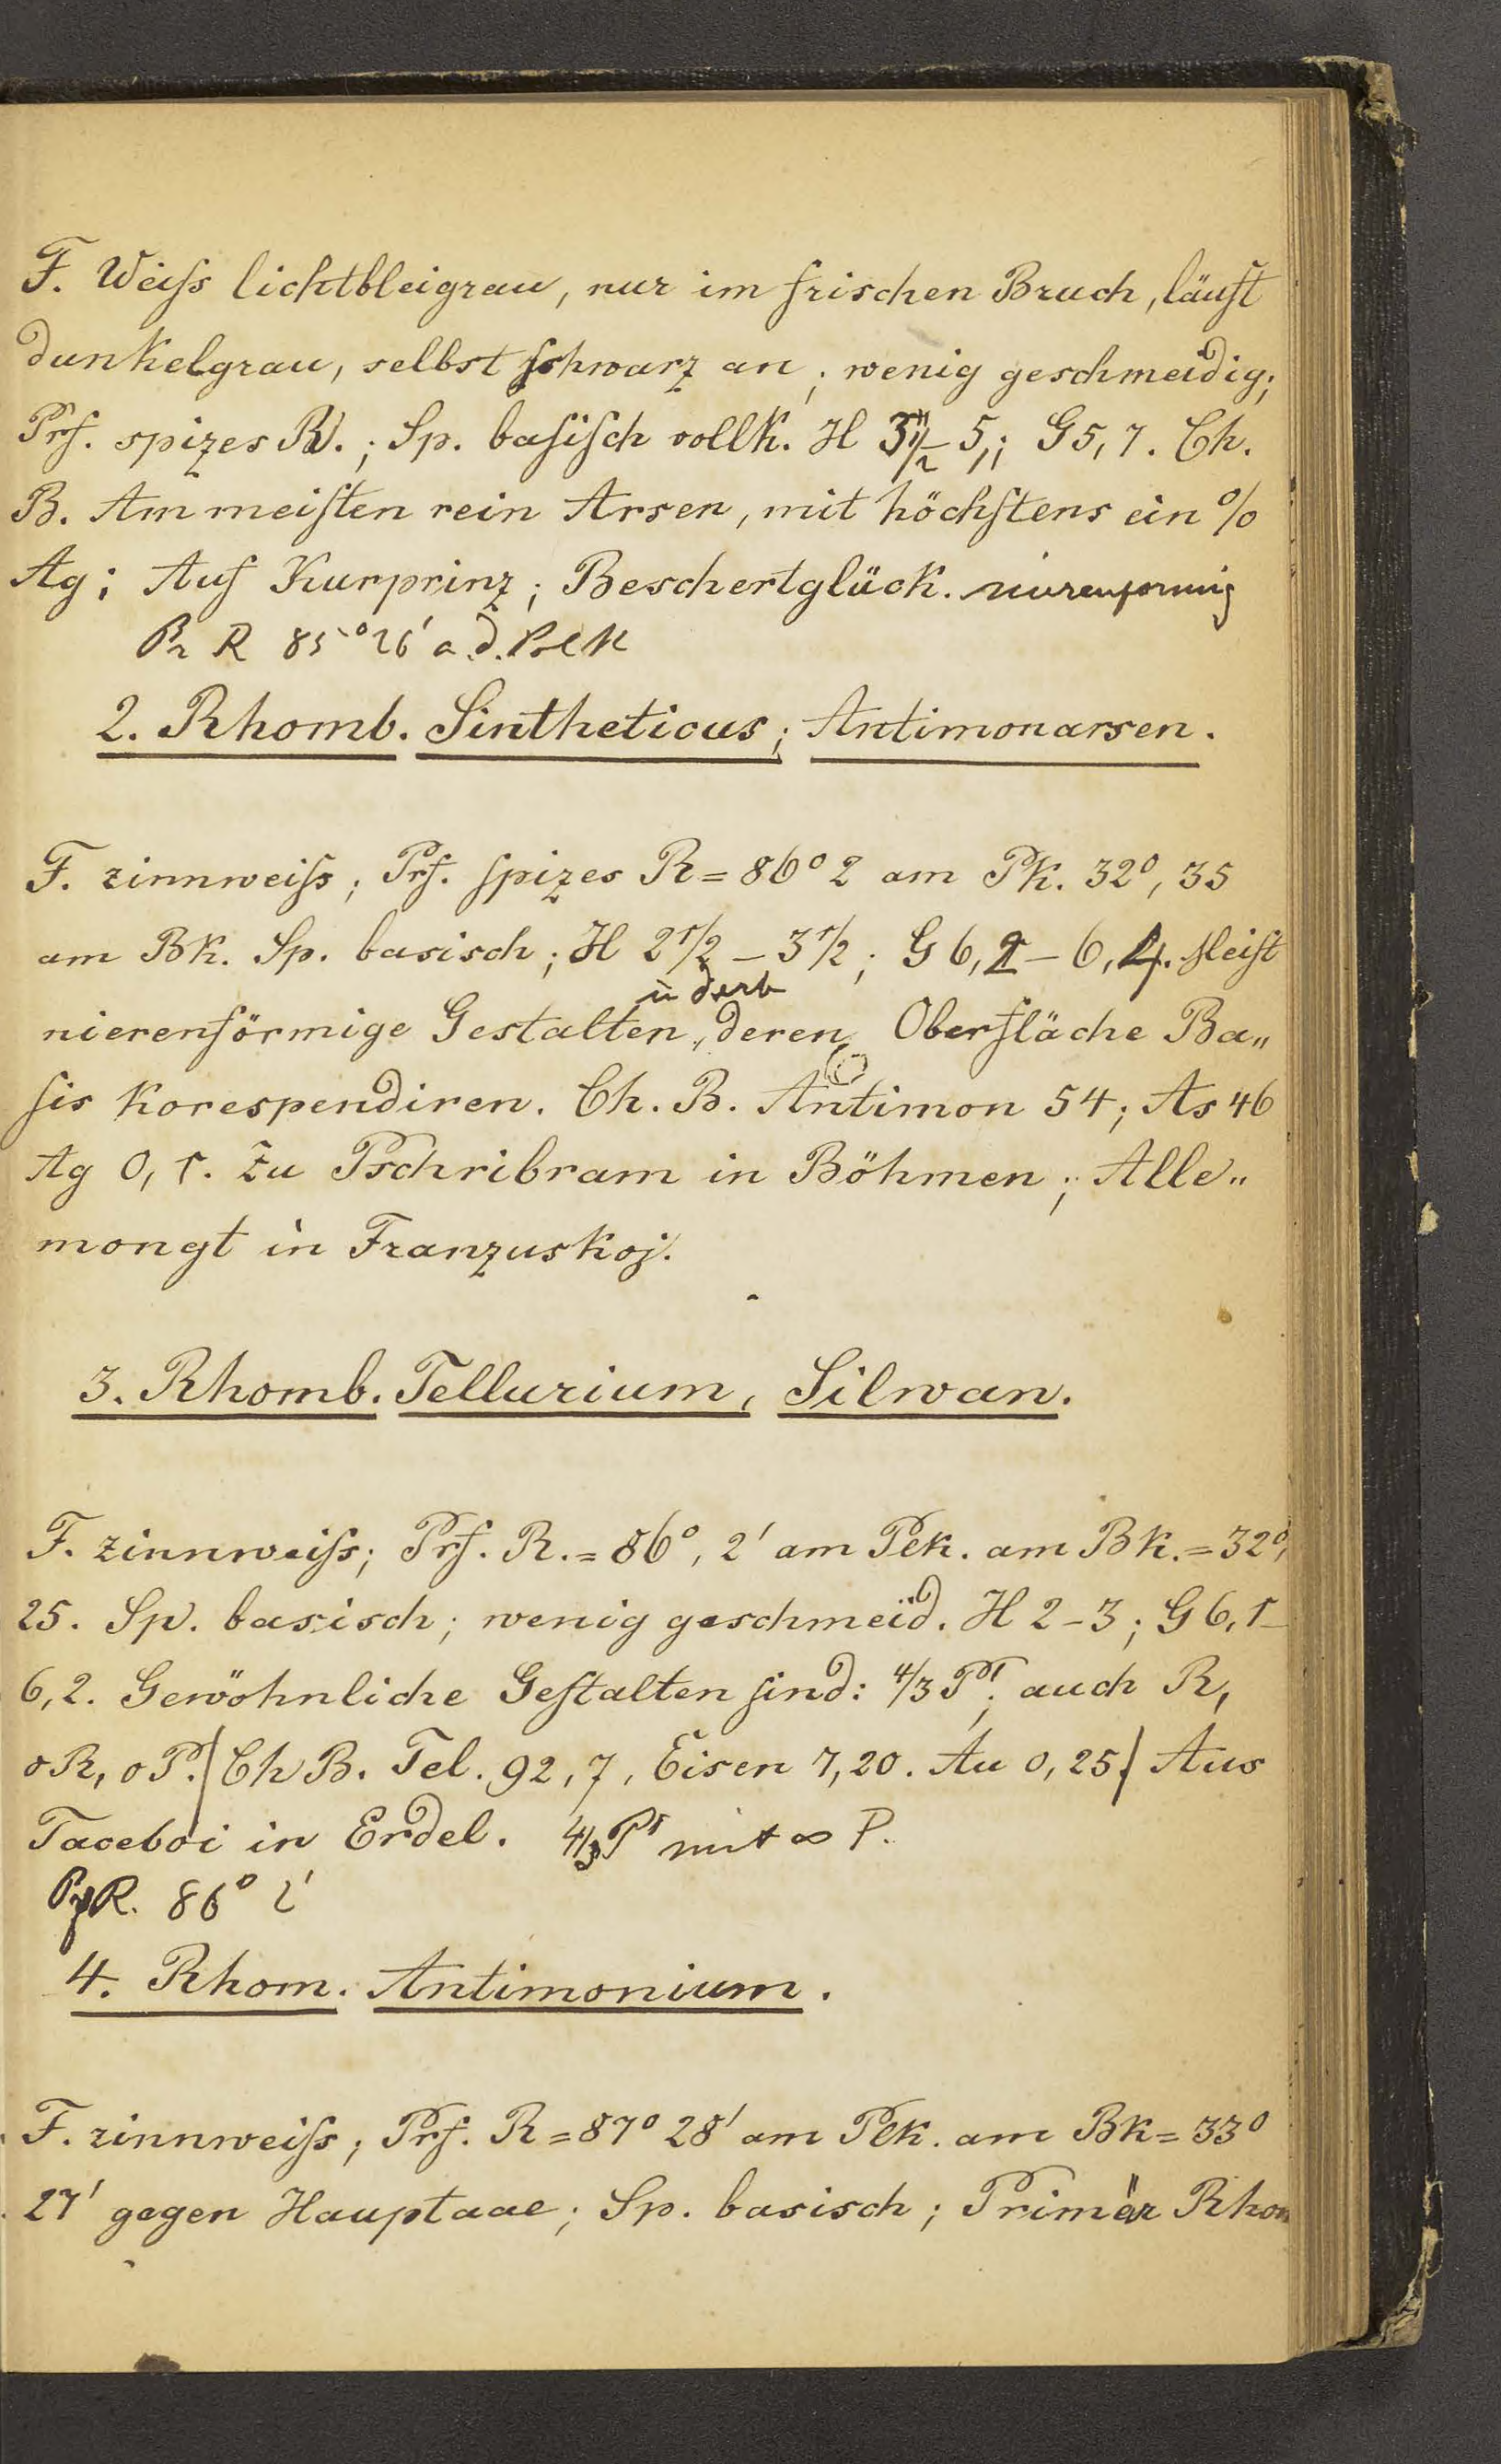 F. Weiſs lichtbleigrau, nur im frischen Bruch, läuft
dunkelgrau, selbst schwarz an; wenig geschmeidig;
Prf. spizes R.; Sp. baſiſch vollk. H 3½ – 5; G 5,7. Ch.
B. Am meiſten rein Arsen, mit höchſtens ein %
Ag; Auf Kurprinz; Beschertglück. nierenformig
Pr R 85° 26' a. d. Polk
2. Rhomb. Sintheticus; Antimonarsen.
F. zinnweiſs; Prf. ſpizes R = 86° 2 am Pk. 32°, 35
am Bk. Sp. basisch; H 2½ – 3½; G 6,2 – 6,4. Meiſt
u derb
nierenförmige Gestalten, deren Oberfläche Ba„
ſis korespendiren. Ch. B. Antimon 54; As 46
Ag 0,1. Zu Pschribram in Böhmen; Alle„
mongt in Franzuskoj.
3. Rhomb. Tellurium, Silwan.
F. zinnweiſs; Prf. R. = 86°, 2' am Pek. am Bk. = 32°,
25. Sp. basisch; wenig geschmeid. H 2 – 3; G 6,1 –
6,2. Gewöhnliche Geſtalten ſind: 4/3 P'; auch R,
oR, oP. (Ch B. Tel. 92,7, Eisen 7,20. Au 0,25) Aus
Taceboi in Erdel. 4/3 P' mit ∞ P.
PrR. 86° 2'
4. Rhom. Antimonium.
F. zinnweiſs; Prf. R = 87° 28' am Pek. am Bk = 33°
27' gegen Hauptaae; Sp. basisch; Primär Rhom